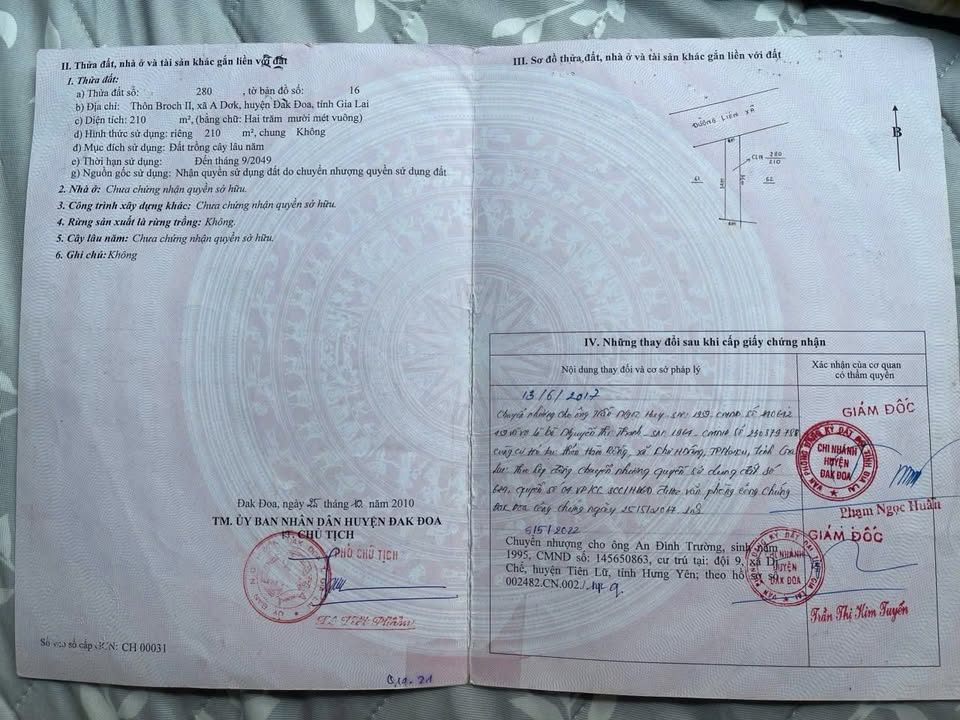 II. Thửa đất, nhà ở và tài sản khác gắn liền với đất
1. Thửa đất:
a) Thửa đất số: 280 , tờ bản đồ số: 16
b) Địa chỉ: Thôn Broch II, xã A Dơk, huyện Đak Đoa, tỉnh Gia Lai
c) Diện tích: 210 m², (bằng chữ: Hai trăm mười mét vuông)
d) Hình thức sử dụng: riêng 210 m², chung Không
đ) Mục đích sử dụng: Đất trồng cây lâu năm
e) Thời hạn sử dụng: Đến tháng 9/2049
g) Nguồn gốc sử dụng: Nhận quyền sử dụng đất do chuyển nhượng quyền sử dụng đất
2. Nhà ở: Chưa chứng nhận quyền sở hữu.
3. Công trình xây dựng khác: Chưa chứng nhận quyền sở hữu.
4. Rừng sản xuất là rừng trồng: Không.
5. Cây lâu năm: Chưa chứng nhận quyền sở hữu.
6. Ghi chú: Không
Đak Đoa, ngày 25 tháng 10 năm 2010
TM. ỦY BAN NHÂN DÂN HUYỆN ĐAK ĐOA
CHỦ TỊCH
PHÓ CHỦ TỊCH
Số vào sổ cấp GCN: CH 00031
III. Sơ đồ thửa đất, nhà ở và tài sản khác gắn liền với đất
ĐƯỜNG LIÊN XÃ
B
CLN 280
210
61
62
IV. Những thay đổi sau khi cấp giấy chứng nhận
Nội dung thay đổi và cơ sở pháp lý
Xác nhận của cơ quan có thẩm quyền
13/6/2017
Chuyển nhượng cho ông Ngọc Huy
và bà Nguyễn Thị Thanh sn 1964 CMND số
cùng cư trú tại: thôn Hàm Rồng, xã Chư HDrông, TP Pleiku, tỉnh Gia
Lai theo hợp đồng chuyển nhượng quyền sử dụng đất số
quyển số văn phòng công chứng
Đak Đoa công chứng ngày
GIÁM ĐỐC
VĂN PHÒNG ĐĂNG KÝ ĐẤT ĐAI TỈNH GIA LAI
CHI NHÁNH
HUYỆN
ĐAK ĐOA
Phạm Ngọc Huân
5/5/2022
Chuyển nhượng cho ông An Đình Trường, sinh năm
1995, CMND số: 145650863, cư trú tại: đội 9, xã Dị
Chế, huyện Tiên Lữ, tỉnh Hưng Yên; theo hồ sơ số
002482.CN.002./.
GIÁM ĐỐC
CHI NHÁNH
HUYỆN
ĐAK ĐOA
Trần Thị Kim Tuyến